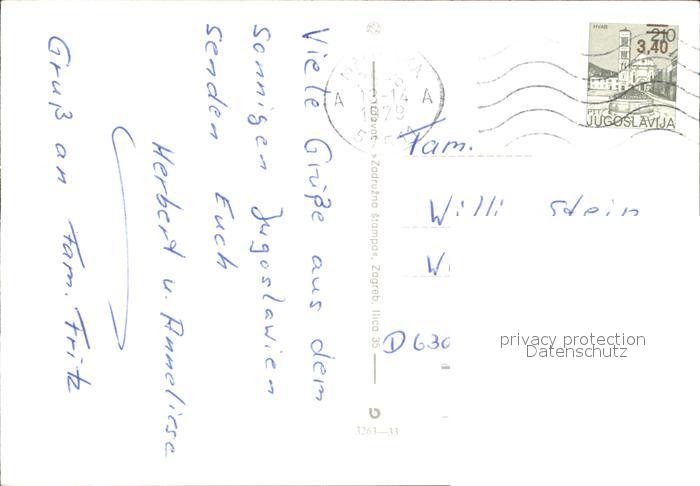 Viele Grüße aus dem
sonnigen Jugoslawien
senden Euch
Herbert u. Anneliese
Gruß an Fam. Fritz
»Zadružna štampa«, Zagreb, Ilica 35
3263—33
A 12-14 A
1979
HVAR
210
3,40
PTT
JUGOSLAVIJA
Fam.
Willi Stein
D 630
privacy protection
Datenschutz